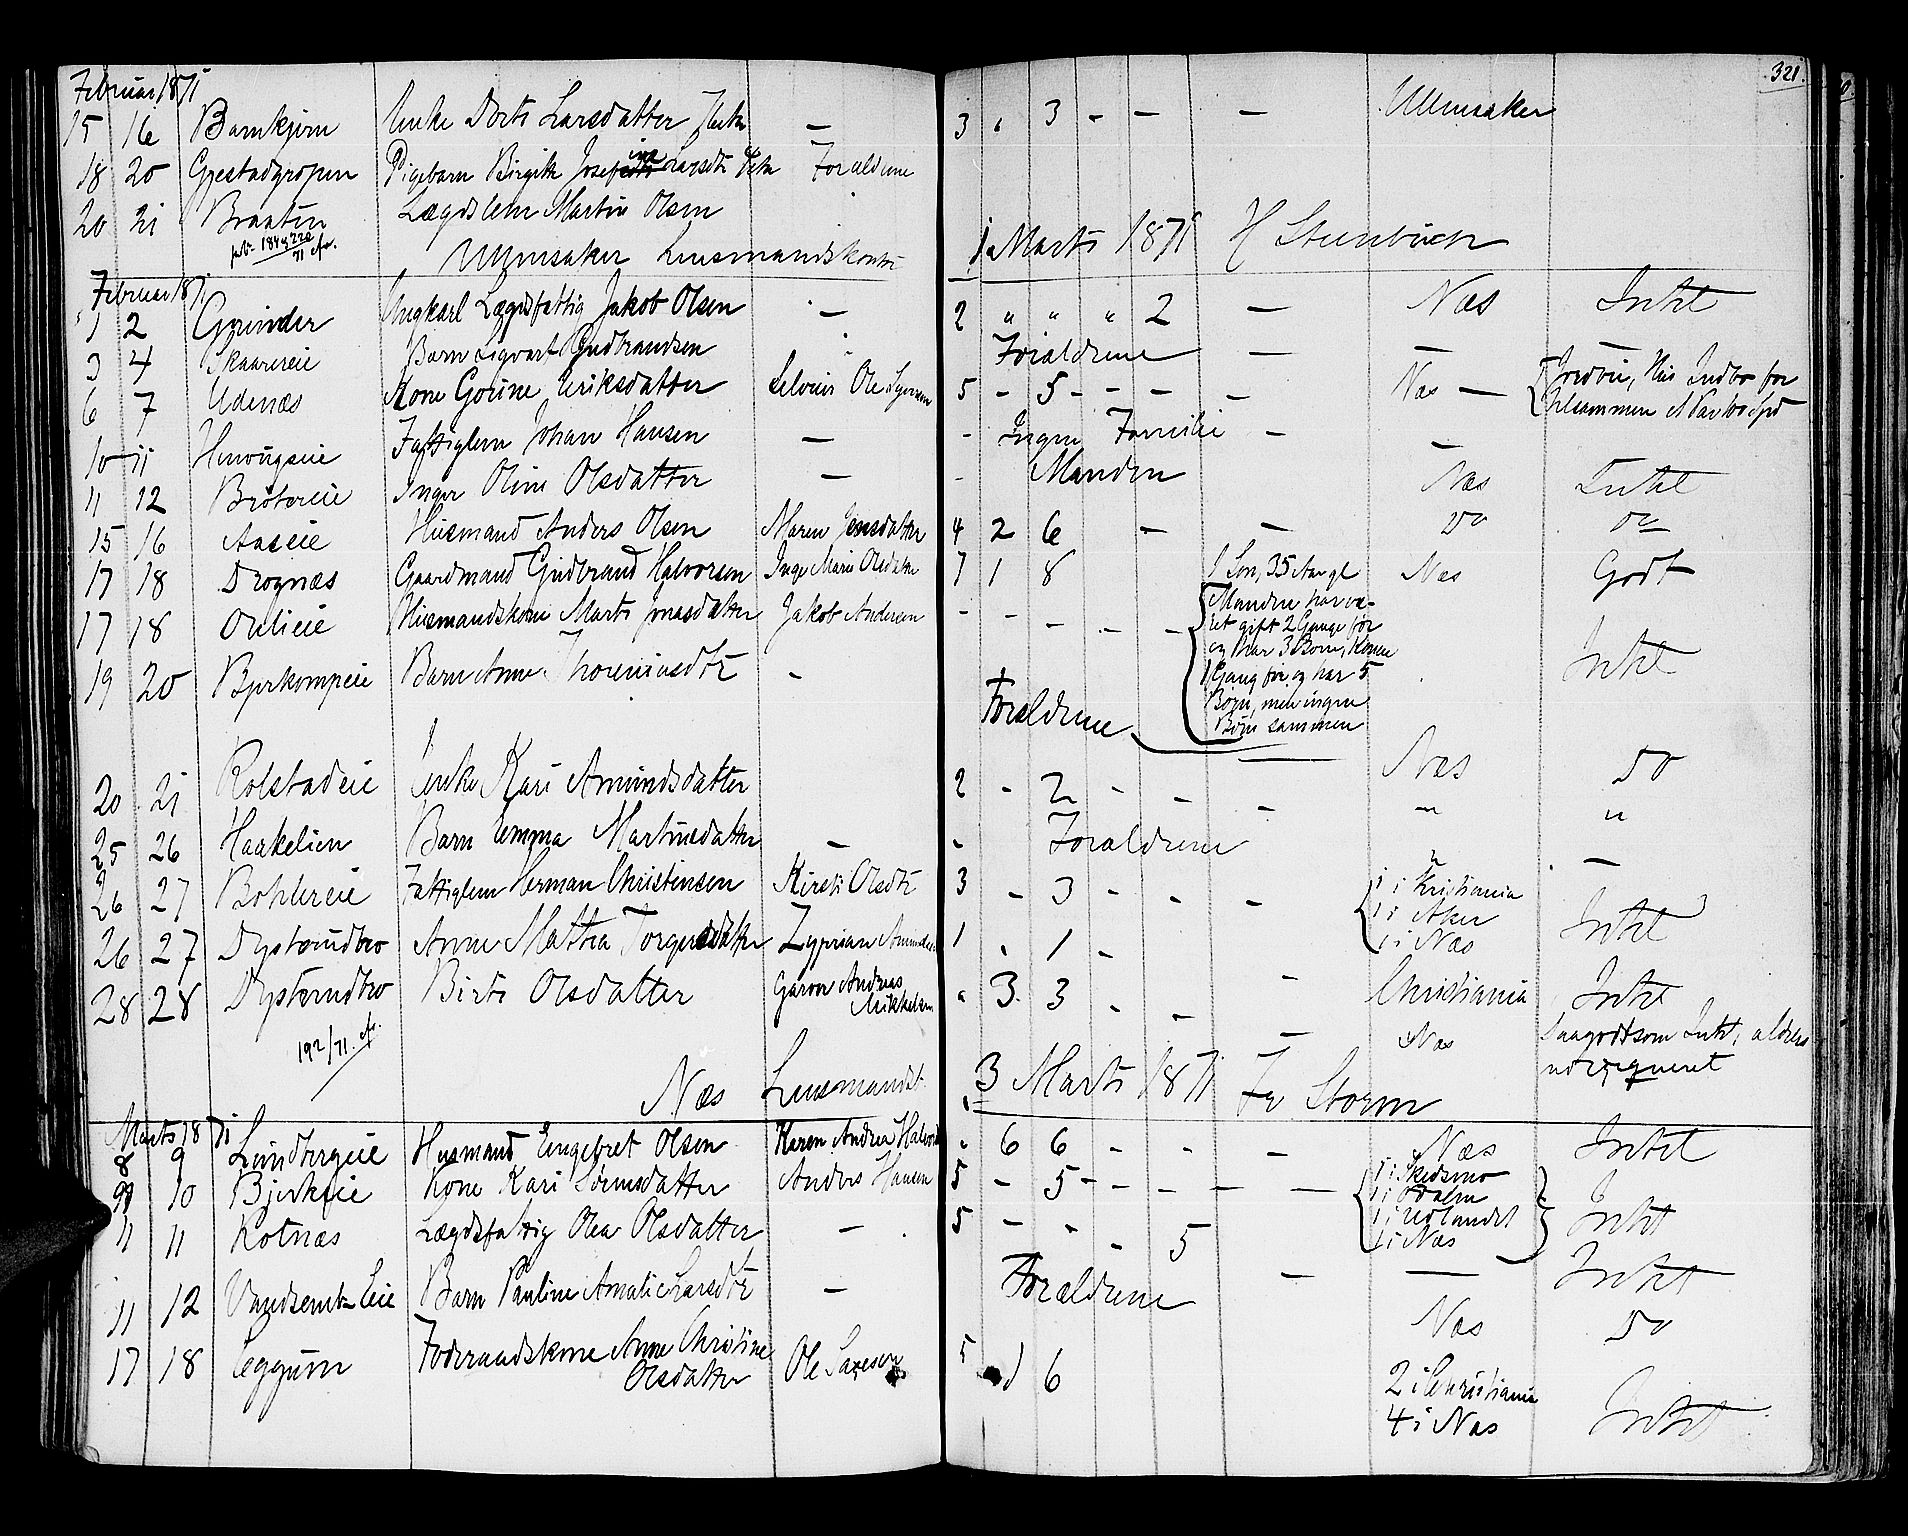 321.
Februar 1871
15 16 Enke Dorte Larsdatter — 3 " 3 - — — Ullensaker
18 20 Gjestadgropen Pigebarn Birgitte Josefine Larsdtr Forældrene
20 21 Braaten Lægdslem Martin Olsen
Ullensaker Lensmandskontr 1 Marts 1871 H Steenbuch
Februar 1871
1 2 Grinder Ungkarl Lægdsfattig Jakob Olsen — 2 " " " 2 — Næs Intet
3 4 Skaarereie Barn Sigvart Gudbrandsen Forældrene — —
6 7 Udenæs Kone Gorine Eriksdatter Selveier Ole 5 - 5 - - - - Næs — Indbo for
tilsammen
10 11 Fattiglem Johan Hansen — - Ingen Familie - —
11 12 Brøtereie Inger Oline Olsdatter — - Manden Næs Intet
15 16 Aaseie Husmand Anders Olsen Maren Jensdatter 4 2 6 - — Do Do
17 18 Drognæs Gaardmand Gudbrand Halvorsen Inge Marie Olsdatter 7 1 8 1 Søn, 35 Aar gl Næs Godt
17 18 Ouleie Husmandskone Marte Jonasdatter Jakob Andersen - - - - -
Manden har væ-
ret gift 2 Gange før
og har 3 Børn, Konen
1 Gang før og har 5
Børn, men ingen
Børn sammen
Intet
19 20 Bjerkompeie Barn Anne - Forældrene —
20 21 Rolstadeie Enke Kari Amundsdatter 2 - 2 - - - Næs Do
25 26 Haakelien Barn Emma Martinsdatter — - Forældrene " "
26 27 Bøhlereie Fattiglem Herman Christensen Kirsti Olsdtr 3 - 3 - - -
1 i Kristiania
1 i Aker
1 i Næs
Intet
26 27 Dysterudbro Anne Mathea Torgersdatter Zyprian 1 - 1 - - Christiania Intet
28 28 Dysterudbro Birte Olsdatter Garver Andreas
Mikkelsen " 3 3 - - — Næs Saagodtsom Intet,
192/71
Næs Lensmandst. 3 Marts 1871 Fr Storm
Marts 1871
8 9 Lundbergeie Husmand Engebret Olsen Karen Andrea " 6 6 - - — Næs Intet
9 10 Bjerkeeie Kone Kari Sørensdatter Anders Hansen 5 - 5 - - - — —
1 i Skedsmo
1 i
1 i Udlandet
1 i Næs
Intet
11 11 Rotnæs Lægdsfattig Olea Olsdatter — 5 - - - 5 — — Intet
11 12 Vandsemb Eie Barn Pauline Amalie Larsdtr — Forældrene Næs Do
17 18 Eggum Føderaadskone Anne Christine
Olsdatter 5 6
2 i Christiania
4 i Næs
Intet